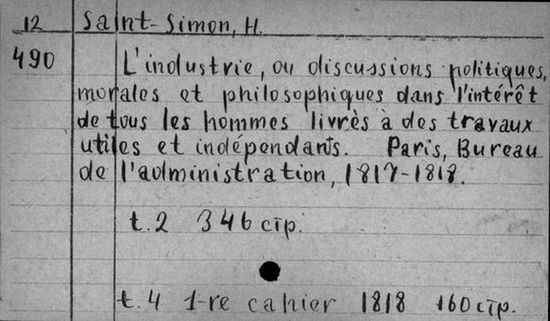 12 Saint-Simon, H.
490 L'industrie, ou discussions politiques,
morales et philosophiques dans l'intérêt
de tous les hommes livrés à des travaux
utiles et indépendants. Paris, Bureau
de l'administration, 1817-1818.
t.2 346 стр.
t.4 1-re cahier 1818 160 стр.